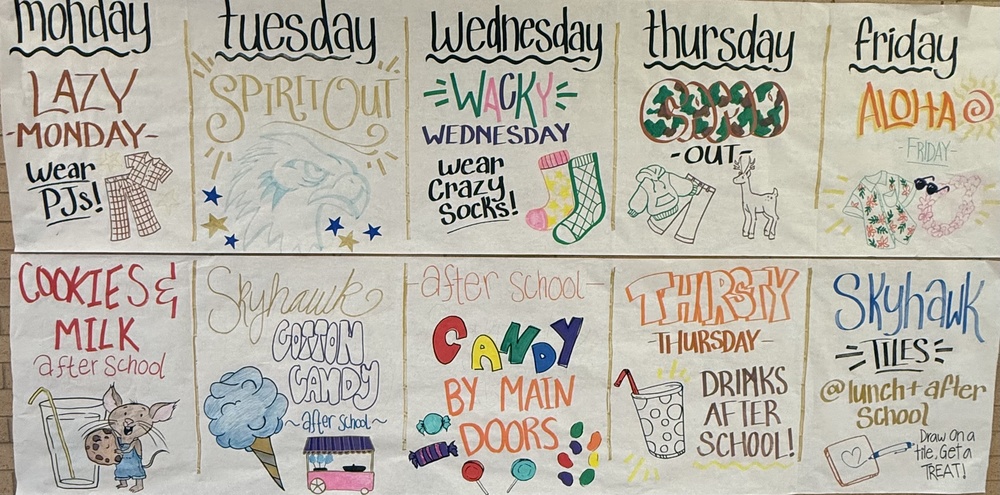 monday
LAZY
-MONDAY-
Wear
PJs!
tuesday
SPIRIT OUT
Wednesday
WACKY
WEDNESDAY
wear
Crazy
Socks!
thursday
CAMO
-OUT-
friday
ALOHA
-FRIDAY-
COOKIES &
MILK
after School
Skyhawk
COTTON
CANDY
~after school~
-after school-
CANDY
BY MAIN
DOORS
THIRSTY
-THURSDAY-
DRINKS
AFTER
SCHOOL!
Skyhawk
TILES
@lunch + after
School
Draw on a
tile, Get a
TREAT!